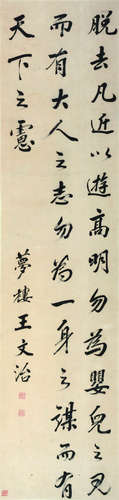 脫去凡近以遊高明勿為嬰兒之見
而有大人之志勿為一身之謀而有
天下之慮
夢樓王文治